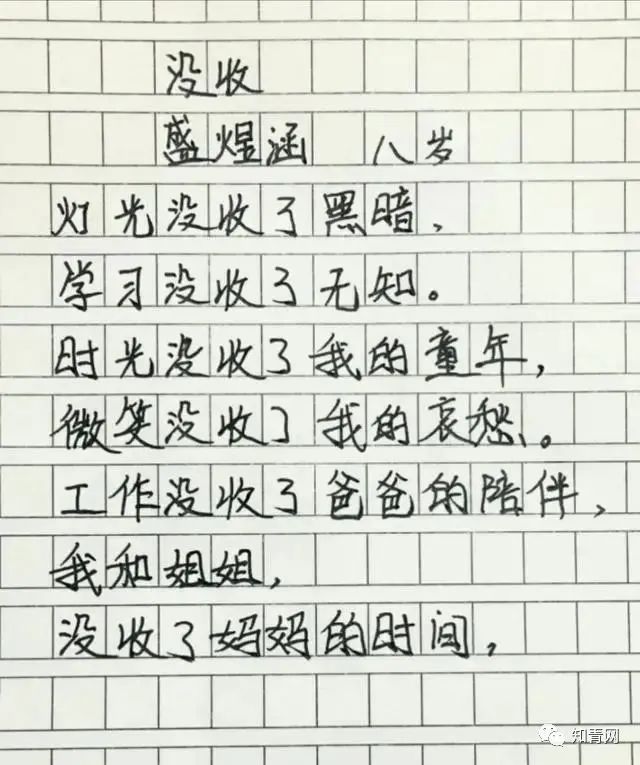 没收
盛煜涵 八岁
灯光没收了黑暗，
学习没收了无知。
时光没收了我的童年，
微笑没收了我的哀愁。
工作没收了爸爸的陪伴，
我和姐姐，
没收了妈妈的时间，
知青网